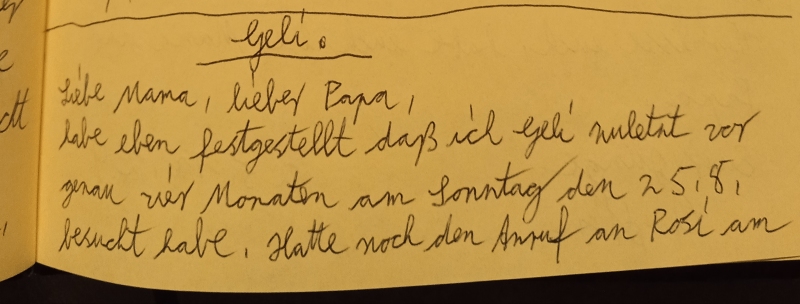 Geli.
Liebe Mama, lieber Papa,
habe eben festgestellt daß ich Geli zuletzt vor
genau vier Monaten am Sonntag den 25.8.
besucht habe. Hatte noch den Anruf an Rosi am